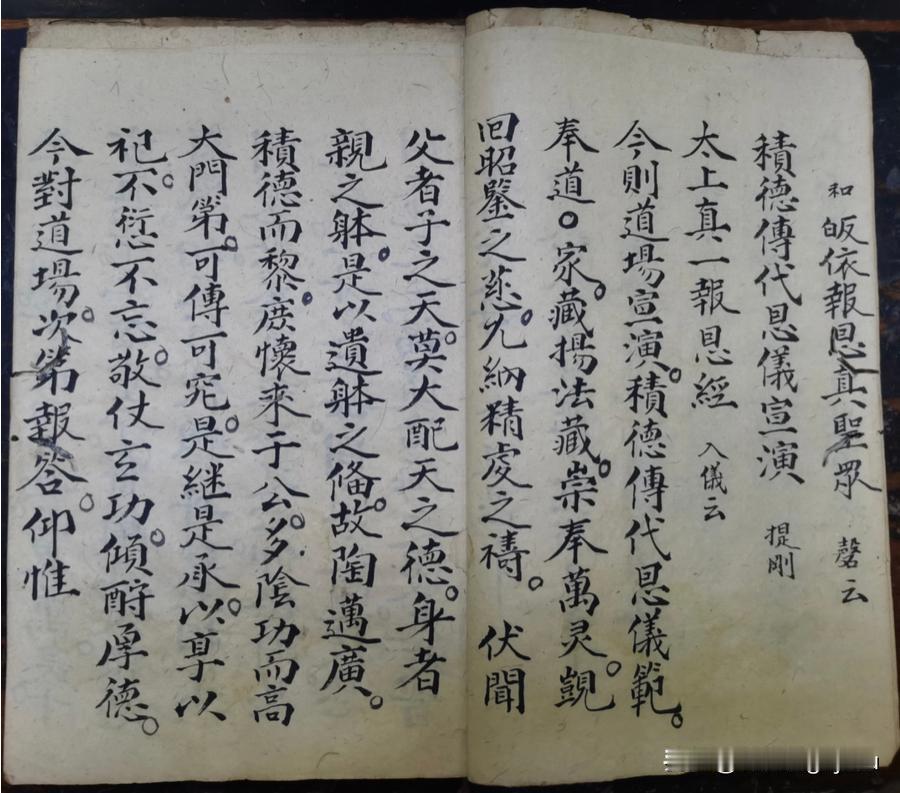 和 皈依報恩真聖眾 磬云
積德傳代恩儀宣演 提剛
太上真一報恩經 入儀云
今則道場宣演。積德傳代恩儀範。
奉道。家藏揚法藏。崇奉萬灵。覬
回昭鑒之慈。允納精虔之禱。伏聞
父者子之天。莫大配天之德。身者
親之躰。是以遺躰之脩。故陶邁廣。
積德而黎庶懷來。于公多陰功而高
大門第。可傳可究。是継是承。以享以
祀。不愆不忘。敬仗玄功。傾酧厚德。
今對道場。次第報答。仰惟